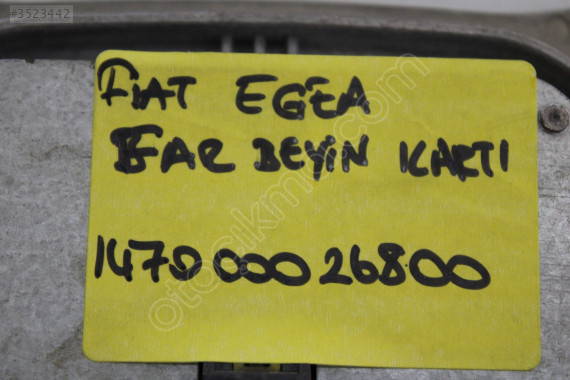 #3523442
FIAT EGEA
FAR BEYİN KARTI
147000026800
otocikmacim.com